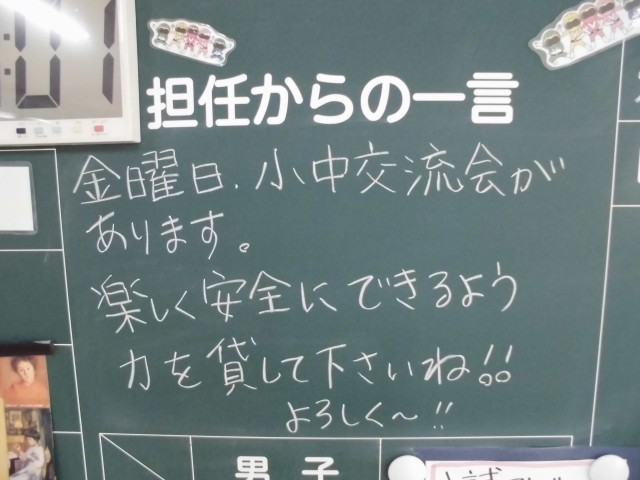 担任からの一言
金曜日、小中交流会が
あります。
楽しく安全にできるよう
力を貸して下さいね!!
よろしく〜!!
男子